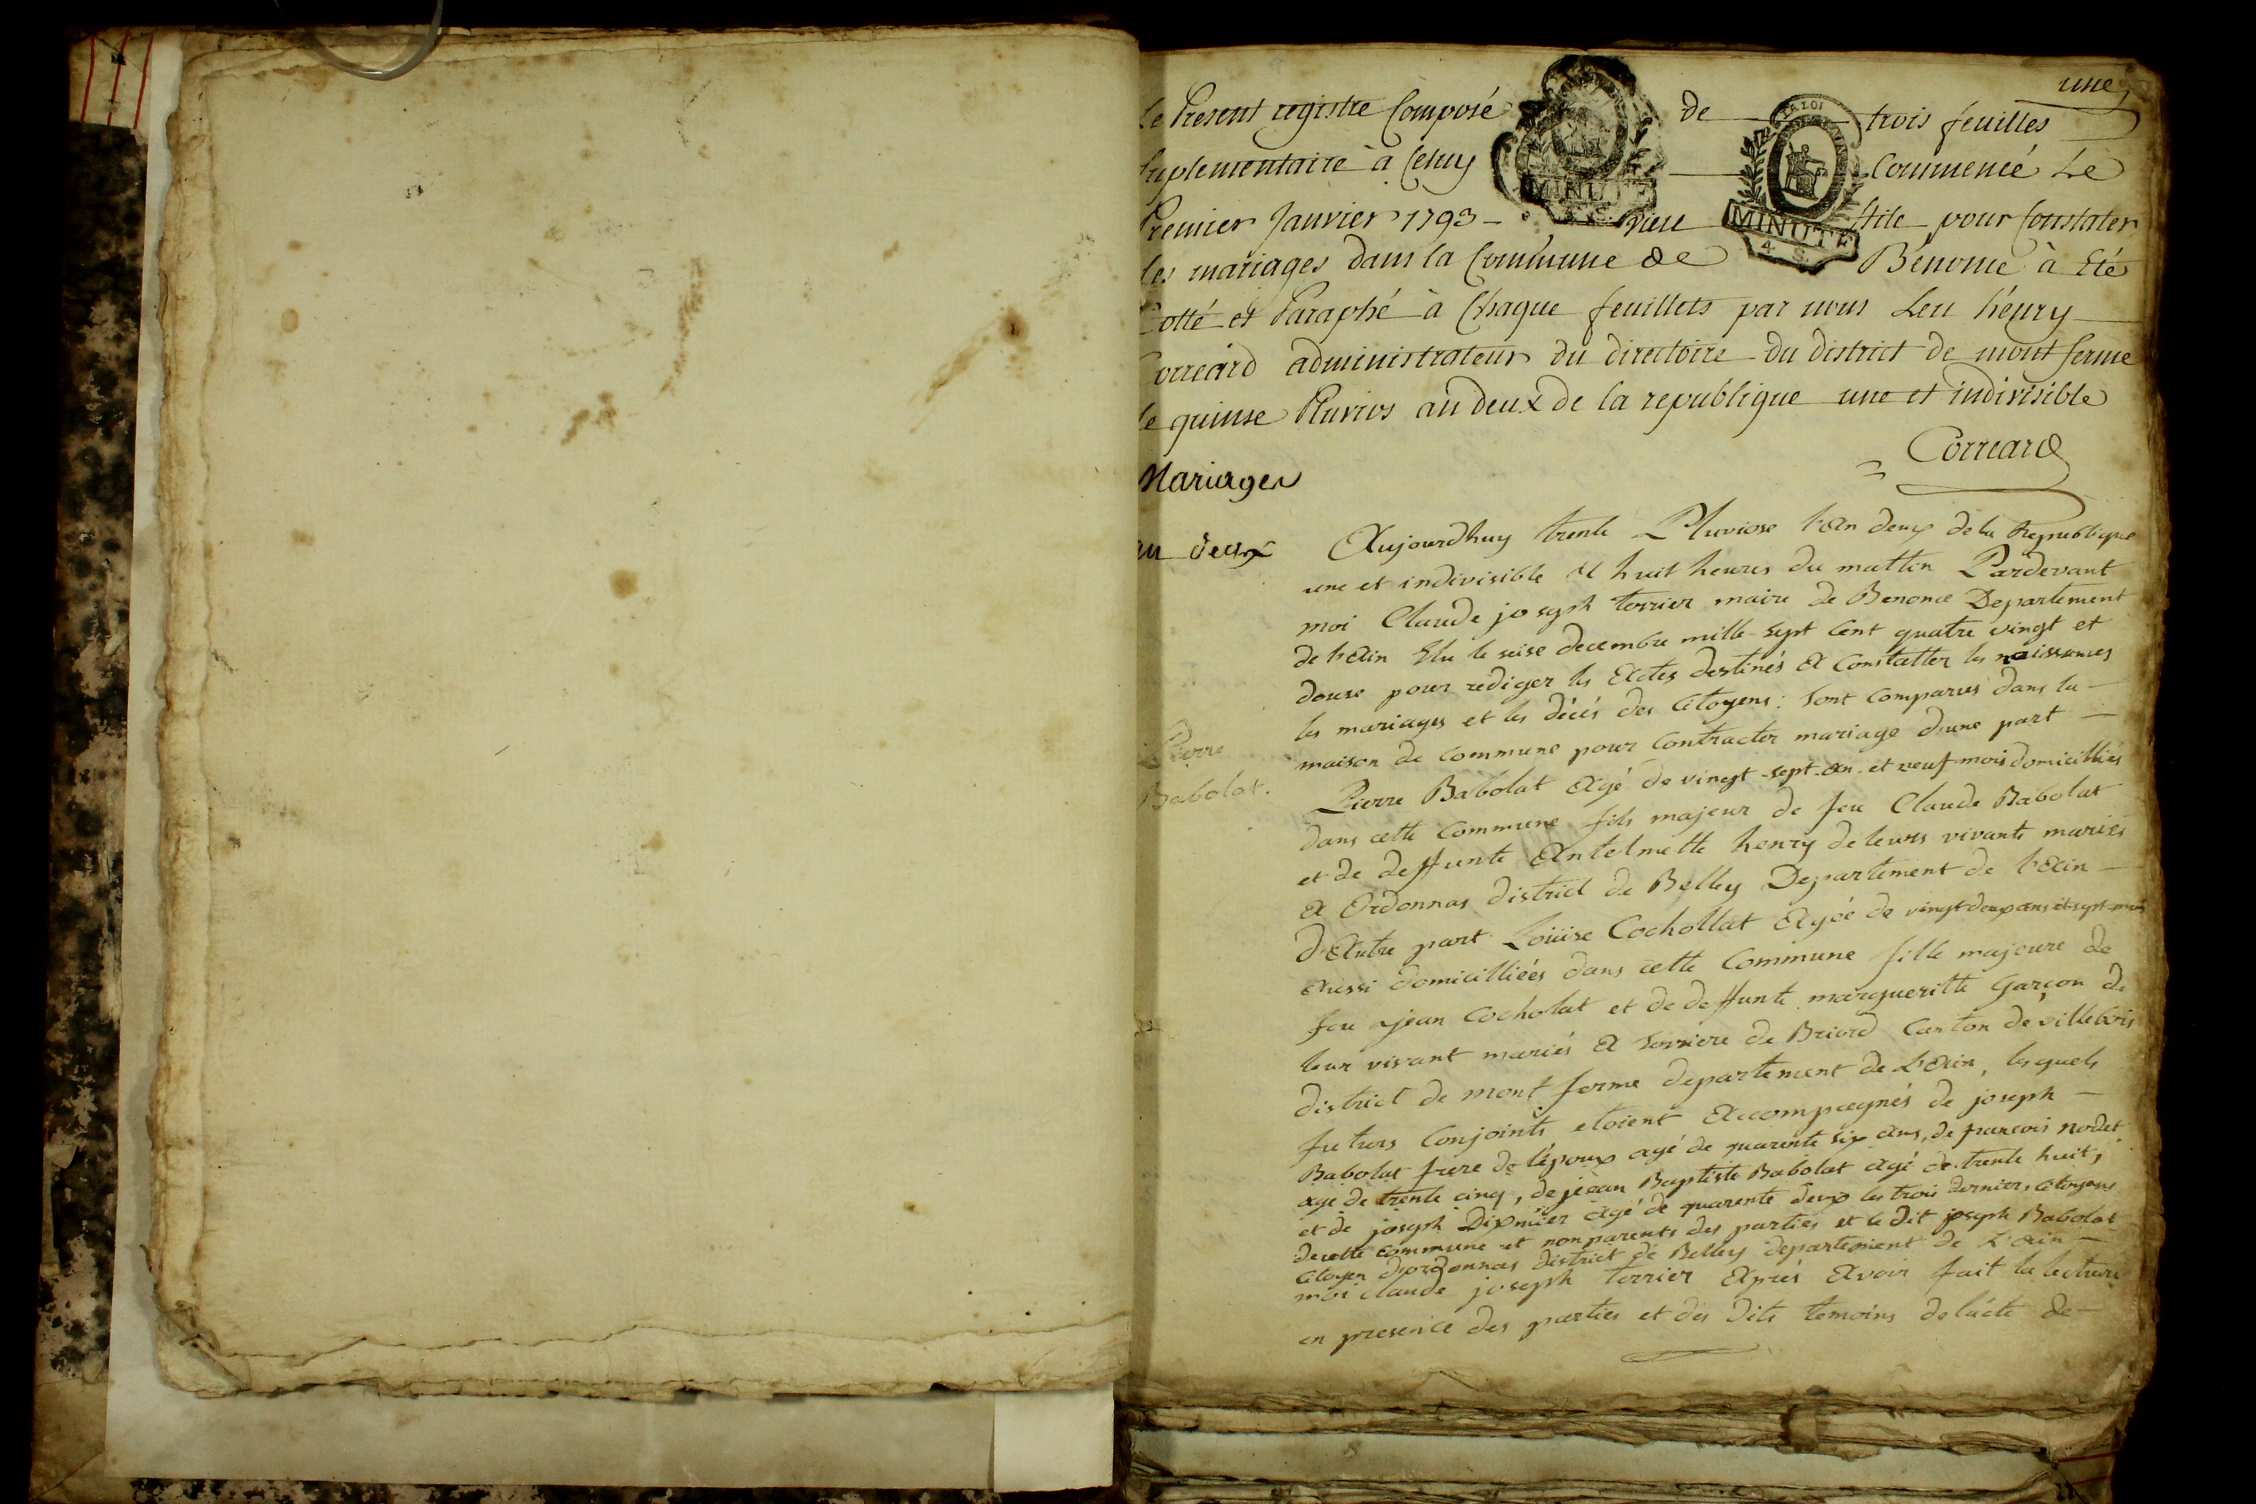 une
Le Present registre Composé de trois feuilles
suplementaire à Celuy Commencé Le
Premier Janvier 1793 - vieu stile pour Constater
les mariages dans la Commune de Bénonce à Eté
Cotté et Paraphé à Chaque feuillets par nous Leu hénry
Correard administrateur du directoire du district de mont ferme
le quinse Pluvios an deux de la republique une et indivisible
Correard
Mariages
an deux
LA LOI
MINUTE
4 S
MINUTE
Aujourdhuy trente Pluviose l'An deux de la Republique
une et indivisible A huit heures du mattin Pardevant
moi Claude joseph terrier maire de Benonce Departement
de l'Ain Elu le seise decembre mille sept Cent quatre vingt et
douse pour rediger les Actes destinés A Constatter les naissances
les mariages et les décés des Citoyens : sont comparus dans la
maison de Commune pour Contracter mariage d'une part
Pierre Babolat.
Pierre Babolat Agé de vingt-sept-An-et neuf mois domicilliés
dans cette Commune fils majeur de feu Claude Babolat
et de deffunte Antelmette henry de leurs vivants mariés
A Ordonnas district de Belley Departement de l'Ain
d'Autre part Loüise Cochollat Agée de vingt deux ans et sept mois
Aussi domicilliées dans cette Commune fille majeure de
feu jean Cocholat et de deffunte margueritte Garçon de
leur vivant mariés A serriere de Briord Canton de villebois
district de mont ferme departement de L'Ain, lesquels
futurs Conjoints etoient Accompagnés de joseph
Babolat frere de l'époux agé de quarente six ans, de francois nodet
agé de trente cinq, de jean Baptiste Babolat Agé de trente huit,
et de joseph Dixmier Agé de quarente deux les trois derniers Citoyens
de cette commune et non parents des parties et le dit joseph Babolat
Citoyen d'ordonnas district de Belley departement de L'Ain
moi claude joseph terrier Aprés Avoir fait la lecture
en presence des parties et des dits temoins de l'acte de